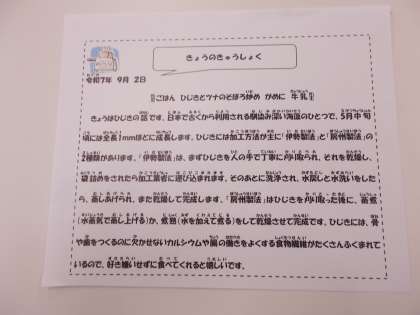 きょうのきゅうしょく
令和7年 9月 2日
ごはん ひじきとツナのそぼろ炒め がめに 牛乳
きょうはひじきの話です。日本で古くから利用される馴染み深い海藻のひとつで、5月中旬
頃には全長1mほどに成長します。ひじきには加工方法が主に「伊勢製法」と「房州製法」の
2種類があります。「伊勢製法」は、まずひじきを人の手で丁寧に刈り取られ、それを乾燥し、
袋詰めをされたら加工業者に運び込まれます。そのあとに洗浄され、水戻しと水洗いをした
ら、蒸しあげられ、また乾燥して完成します。「房州製法」はひじきを刈り取った後に、蒸煮
(水蒸気で蒸し上げる)か、煮熟(水を加えて煮る)をして乾燥させて完成です。ひじきには、骨
や歯をつくるのに欠かせないカルシウムや腸の働きをよくする食物繊維がたくさんふくまれて
いるので、好き嫌いせずに食べてくれると嬉しいです。